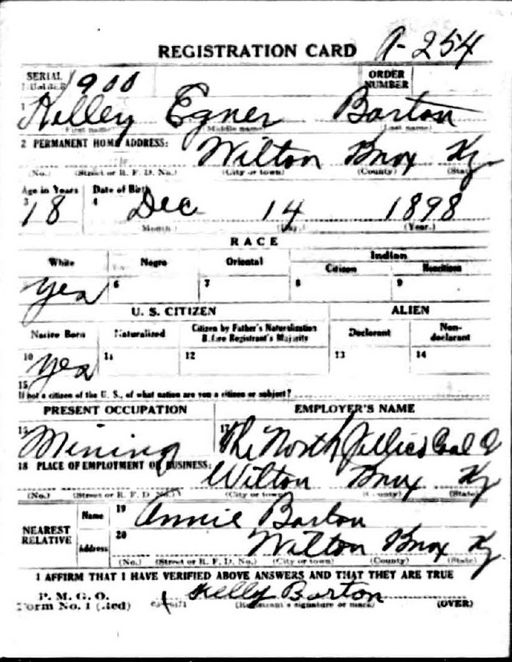 REGISTRATION CARD A-254
SERIAL NUMBER 1900 ORDER NUMBER
1 Kelley Egner Barton
(First name) (Middle name) (Last name)
2 PERMANENT HOME ADDRESS: Wilton Knox Ky
(No.) (Street or R. F. D. No.) (City or town) (County) (State)
Age in Years Date of Birth
3 18 4 Dec 14 1898
(Month) (Day) (Year.)
RACE
White Negro Oriental Indian
Citizen Noncitizen
Yes 6 7 8 9
U. S. CITIZEN ALIEN
Native Born Naturalized Citizen by Father's Naturalization Before Registrant's Majority Declarant Non-declarant
10 Yes 11 12 13 14
15
If not a citizen of the U. S., of what nation are you a citizen or subject?
PRESENT OCCUPATION EMPLOYER'S NAME
Mining 17 The North Jellico Coal Co
18 PLACE OF EMPLOYMENT OR BUSINESS: Wilton Knox Ky
(No.) (Street or R. F. D. No.) (City or town) (County) (State)
NEAREST RELATIVE
Name 19 Annie Barton
Address 20 Wilton Knox Ky
(No.) (Street or R. F. D. No.) (City or town) (County) (State)
I AFFIRM THAT I HAVE VERIFIED ABOVE ANSWERS AND THAT THEY ARE TRUE
P. M. G. O.
Form No. 1 (Red) Kelly Barton
(Registrant's signature or mark) (OVER)